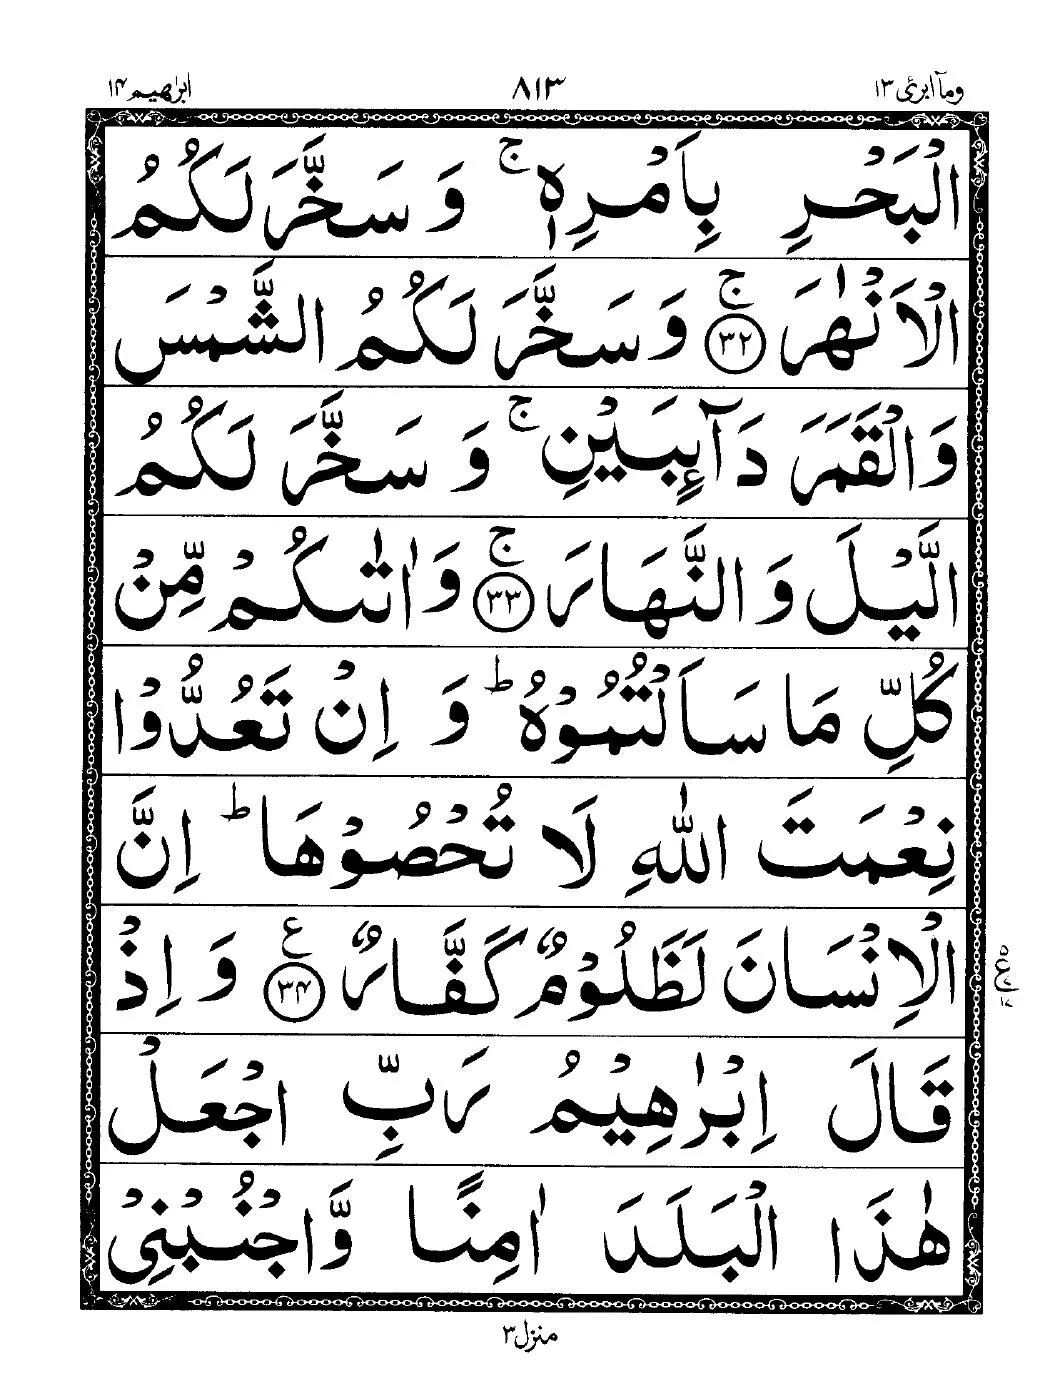 وماۤ ابرئ ١٣ ٨١٣ ابرٰهيم ١٤
الْبَحْرِ بِاَمْرِهٖ ۚ وَ سَخَّرَ لَكُمُ
الْاَنْهٰرَ ﴿٣٢﴾ ۚ وَ سَخَّرَ لَكُمُ الشَّمْسَ
وَالْقَمَرَ دَآىِٕبَيْنِ ۚ وَ سَخَّرَ لَكُمُ
الَّيْلَ وَ النَّهَارَ ﴿٣٣﴾ ۚ وَ اٰتٰىكُمْ مِّنْ
كُلِّ مَا سَاَلْتُمُوْهُ ؕ وَ اِنْ تَعُدُّوْا
نِعْمَتَ اللّٰهِ لَا تُحْصُوْهَا ؕ اِنَّ
الْاِنْسَانَ لَظَلُوْمٌ كَفَّارٌ ﴿٣٤﴾ ع وَ اِذْ
قَالَ اِبْرٰهِيْمُ رَبِّ اجْعَلْ
هٰذَا الْبَلَدَ اٰمِنًا وَّاجْنُبْنِيْ
منزل ٣